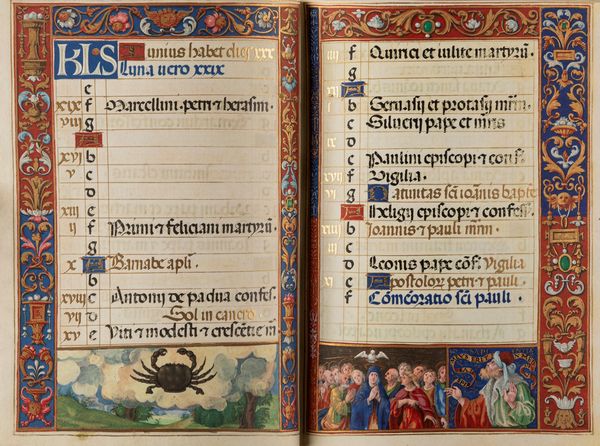 KLS Junius habet dies xxx
Luna vero xxix
e
xix f Marcellini. petri ⁊ herasmi.
viii g
A
xvi b
v c
d
xiii e
ii f Primi ⁊ feliciani martyrū
g
x A Barnabe apłi.
b
xviii c Antonii de padua confes.
vii d Sol in cancro.
xv e Viti ⁊ modesti ⁊ crescētie m̄
iiii f Quirici et iulite martyrū.
g
xii A
b Gervasij et protasij mrm.
c Silverij pape et mris
ix d
e Paulini episcopi ⁊ conf.
xvii f Vigilia.
vi g Nativitas scī ioānis bapte
A Eligij episcopi ⁊ confess.
xiiii b Joannis ⁊ pauli mrm.
c
d Leonis pape cōf. Vigilia
xi e Apostolor petri ⁊ pauli.
f Cōmemoratio scī pauli.